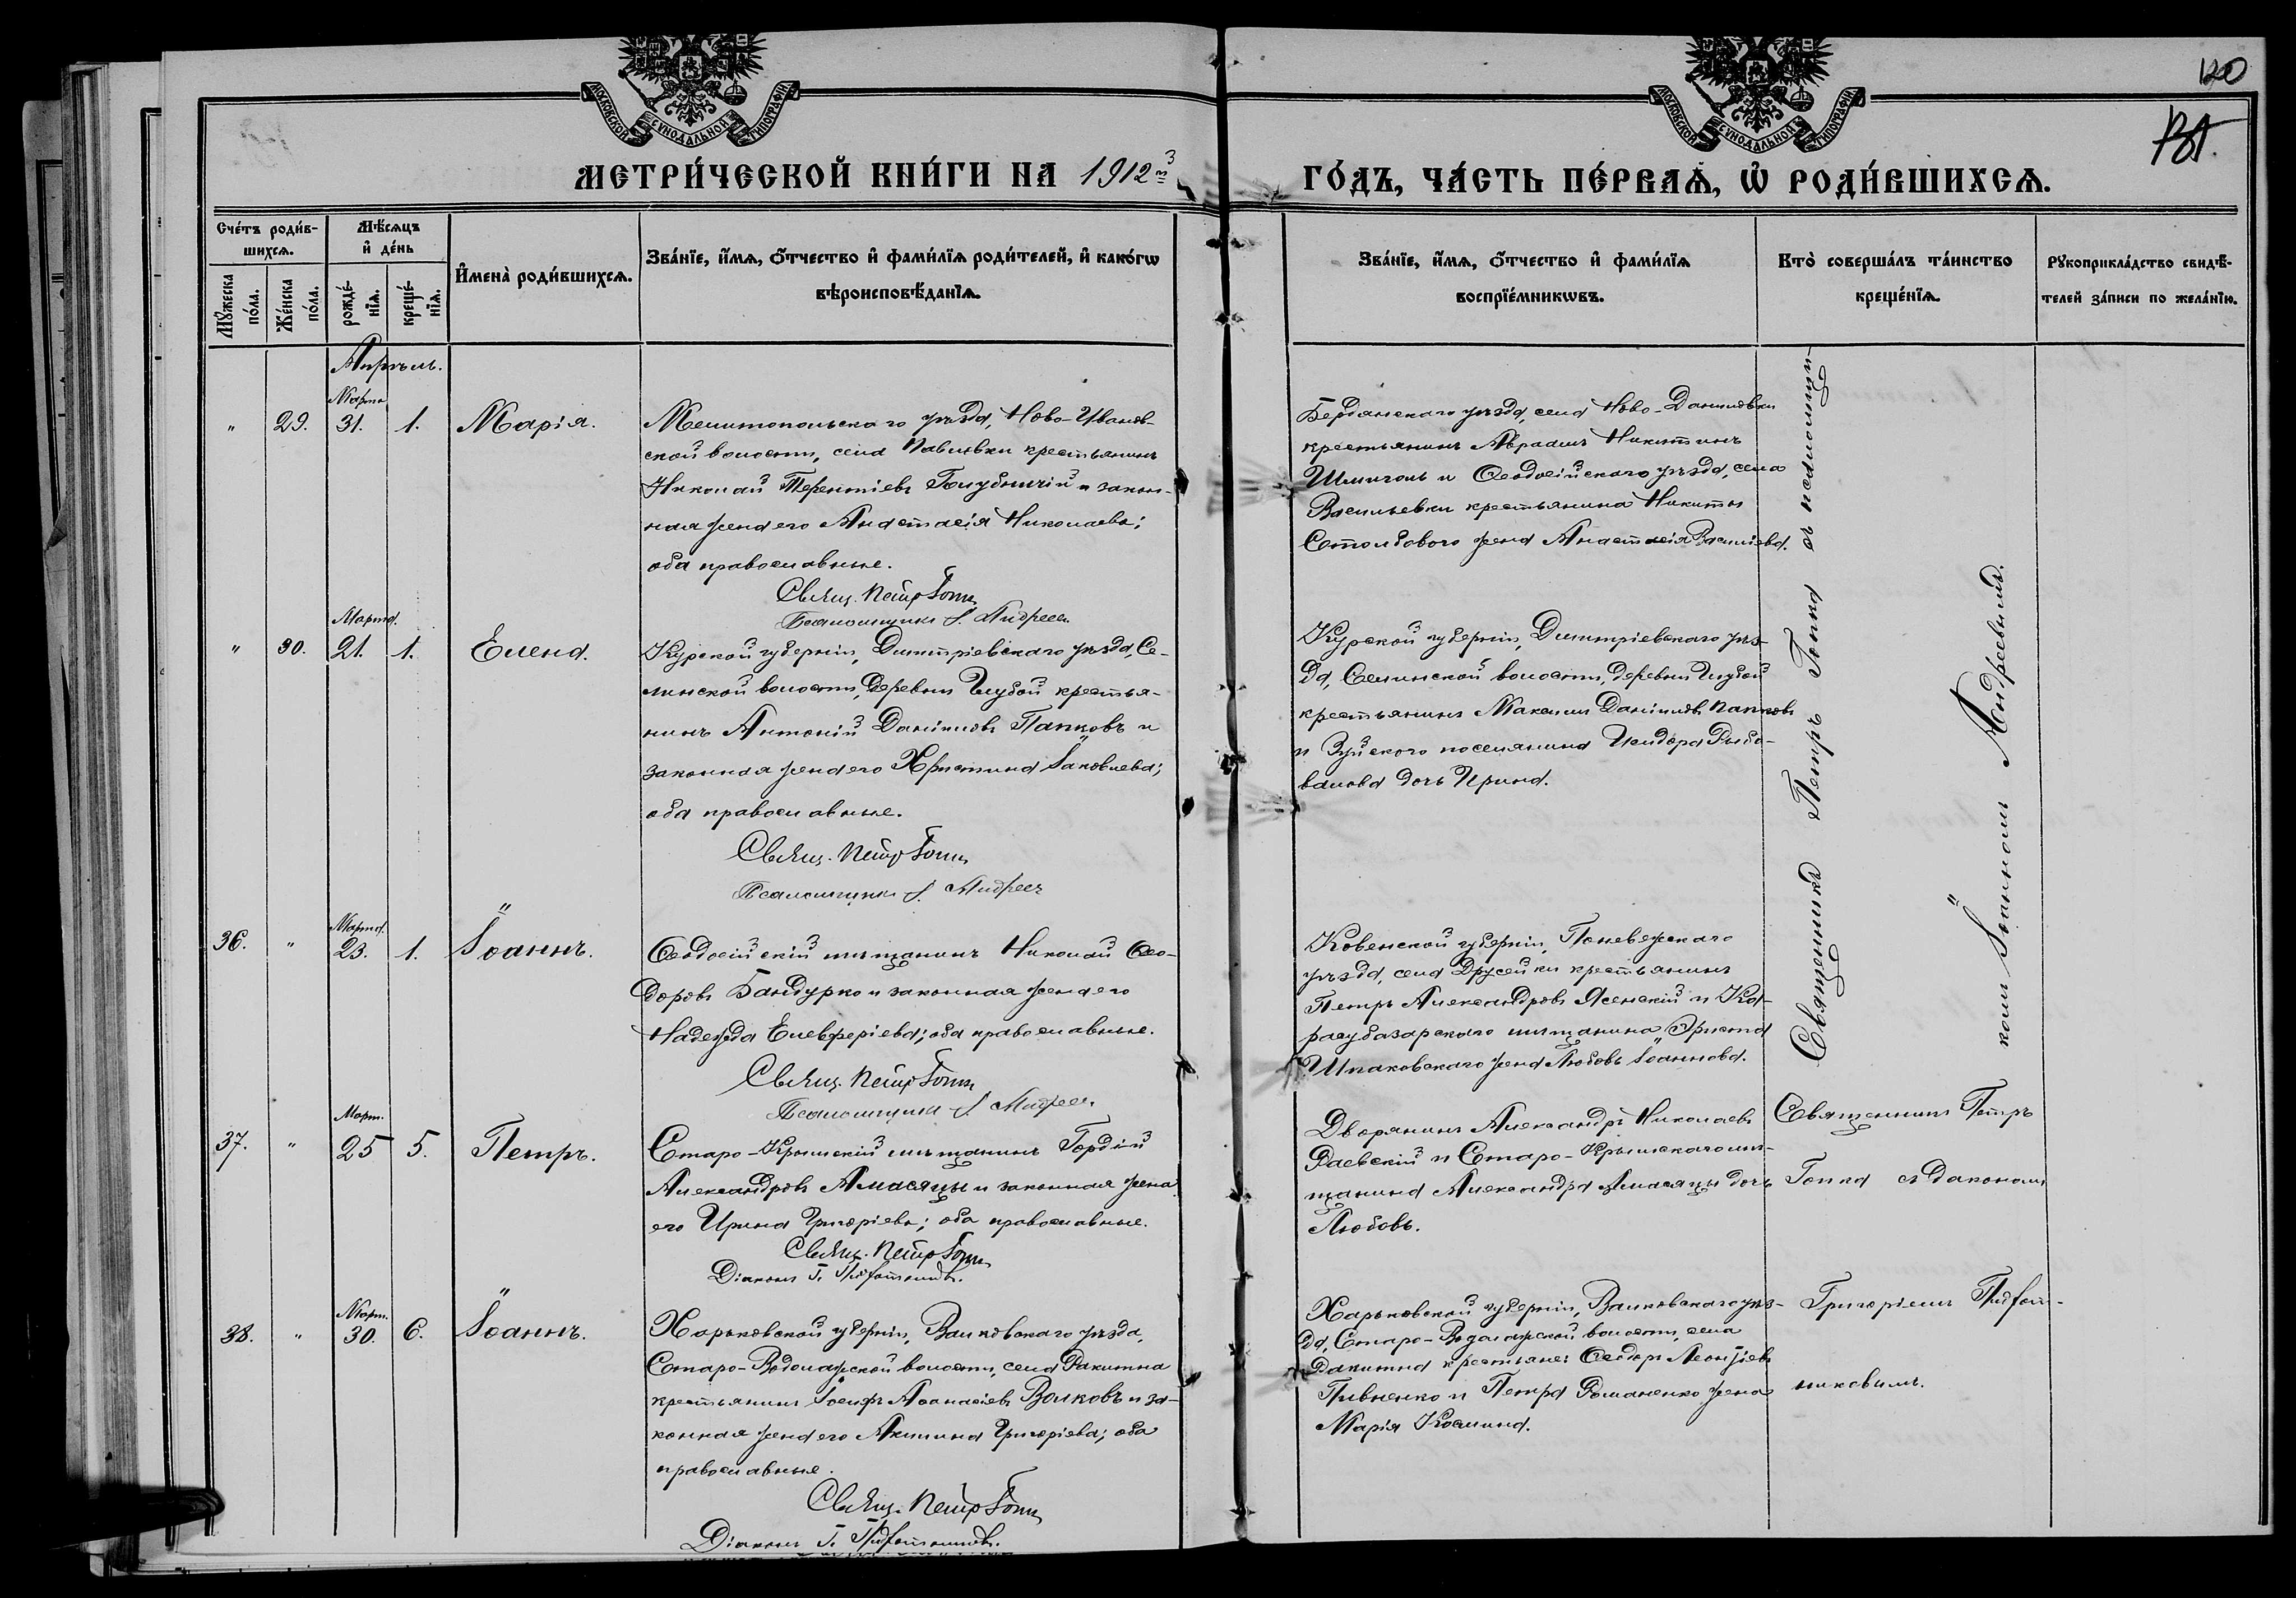 МОСКОВСКОЙ СѴНОДАЛЬНОЙ ТИПОГРАФІИ
МОСКОВСКОЙ СѴНОДАЛЬНОЙ ТИПОГРАФІИ
120
МЕТРИ́ЧЕСКОЙ КНИ́ГИ НА 1912
ГО́ДЪ, ЧА́СТЬ ПЕ́РВАѦ, Ѡ҆ РОДИ́ВШИХСѦ.
Сче́тъ роди́в-
шихсѧ.
Мѣ́сѧцъ
и҆ де́нь
Мꙋ́жеска
по́ла.
Же́нска
по́ла.
рожде́-
нїѧ.
креще́-
нїѧ.
И҆мена̀ роди́вшихсѧ.
Зва́нїе, и҆́мѧ, ѻ҆́тчество и҆ фами́лїѧ роди́телей, и҆ како́гѡ
вѣроисповѣ́данїѧ.
Зва́нїе, и҆́мѧ, ѻ҆́тчество и҆ фами́лїѧ
воспрїе́мникѡвъ.
Кто̀ соверша́лъ та́инство
креще́нїѧ.
Рꙋкоприкла́дство свидѣ́-
телей за́писи по жела́нїю.
Апрѣль.
Марта
" 29. 31. 1. Марія.
Мелитопольскаго уѣзда, Ново-Иванов-
ской волости, села Павловки крестьянинъ
Николай Терентіевъ Голубничій и закон-
ная жена его Анастасія Николаева;
оба православные.
Свящ. Петръ Гопка
Псаломщикъ І. Андреев
Бердянскаго уѣзда, села Ново-Даниловки
крестьянинъ Авраамъ Никитинъ
Шмиголь и Ѳеодосійскаго уѣзда, села
Васильевки крестьянина Никиты
Столбового жена Анастасія Васильева.
Марта.
" 30. 21. 1. Елена.
Курской губерніи, Димитріевскаго уѣзда, Се-
линской волости, деревни Глубой крестья-
нинъ Антоній Даніиловъ Папковъ и
законная жена его Христина Іаковлева;
оба православные.
Свящ. Петръ Гопка
Псаломщикъ І. Андреев
Курской губерніи, Димитріевскаго уѣз-
да, Селинской волости, деревни Глубой
крестьянинъ Максим Даніиловъ Папковъ
и Зуйского поселянина Исидора Рыбо-
валова дочь Ирина.
Марта.
36. " 23. 1. Іоаннъ.
Ѳеодосійскій мѣщанинъ Николай Ѳео-
доровъ Бандурко и законная жена его
Надежда Елевферіева; оба православные.
Свящ. Петръ Гопка
Псаломщикъ І. Андреев
Ковенской губерніи, Поневежскаго
уѣзда, села Друсейки крестьянинъ
Петръ Александровъ Ясенскій и Ка-
расубазарскаго мѣщанина Эрнста
Шпаковскаго жена Любовь Іоаннова.
Священникъ Петръ Гопка съ псаломщи-
комъ Іоанномъ Андреевымъ.
Март.
37. " 25 5. Петръ.
Старо-Крымскій мѣщанинъ Гордій
Александровъ Амасяцы и законная жена
его Ирина Григоріева; оба православные.
Свящ. Петръ Гопка
Діаконъ Г.
Дворянинъ Александръ Николаевъ
Раевскій и Старо-Крымскаго мѣ-
щанина Александра Амасяцы дочь
Любовь.
Священникъ Петръ
Гопка съ діакономъ
Март.
38. " 30. 6. Іоаннъ.
Харьковской губерніи, Валковскаго уѣзда,
Старо-Водолажской волости, села Ракитна
крестьянинъ Іосифъ Аѳанасіевъ Волковъ и за-
конная жена его Акилина Григоріева; оба
православные.
Свящ. Петръ Гопка
Діаконъ Г.
Харьковской губерніи, Валковскаго уѣз-
да, Старо-Водолажской волости, села
Ракитна крестьяне: Ѳеодоръ Леонтіевъ
Пивненко и Петра Романенко жена
Марія Космина.
Григоріемъ